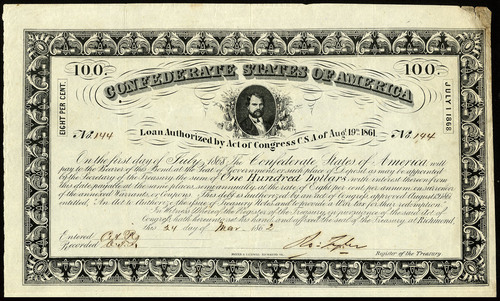 100. 100.
CONFEDERATE STATES OF AMERICA
EIGHT PER CENT.
JULY 1 1868
Loan Authorized by Act of Congress C.S.A. of Aug. 19th 1861.
No. 144 No. 144
On the first day of July, 1868, The Confederate States of America, will
pay to the Bearer of this Bond, at the Seat of Government, or such place of Deposit as may be appointed
by the Secretary of the Treasury, the sum of One Hundred Dollars, with interest thereon from
this date, payable at the same places, semi-annually, at the rate of Eight per cent. per annum, on surrender
of the annexed Coupons. This debt is authorized by an Act of Congress approved August 19, 1861,
entitled "An Act to Authorize the issue of Treasury Notes, and to provide a War Tax for their redemption."
In Witness Whereof the Register of the Treasury, in pursuance of the said Act of
Congress, hath hereunto set his hand, and affixed the seal of the Treasury, at Richmond,
this 24 day of Mar 1862
Entered
Recorded
Ro: Tyler
Register of the Treasury